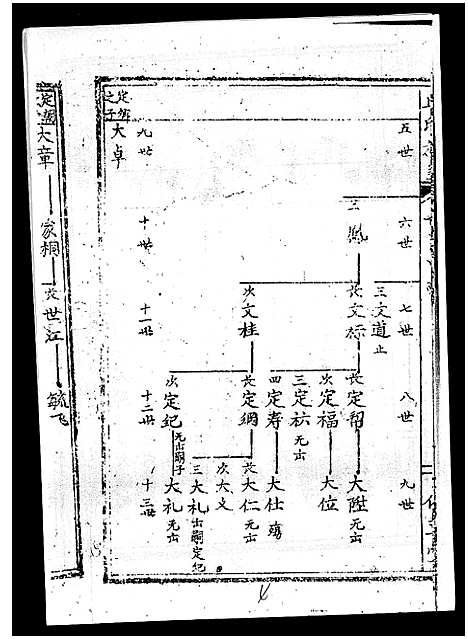 五世
六世
七世
八世
九世
三鳳
三文道止
長文标
次文柱
長定帮
次定福
三定祜无出
四定寿
長定綱
次定紀无出嗣子
大陞无出
大位
大仕殇
長大仁无出
次大义
三大礼出嗣定紀
大礼无出
九世
十世
十一世
十二世
十三世
之子
大卓
大章
家桐
長世江
毓飞